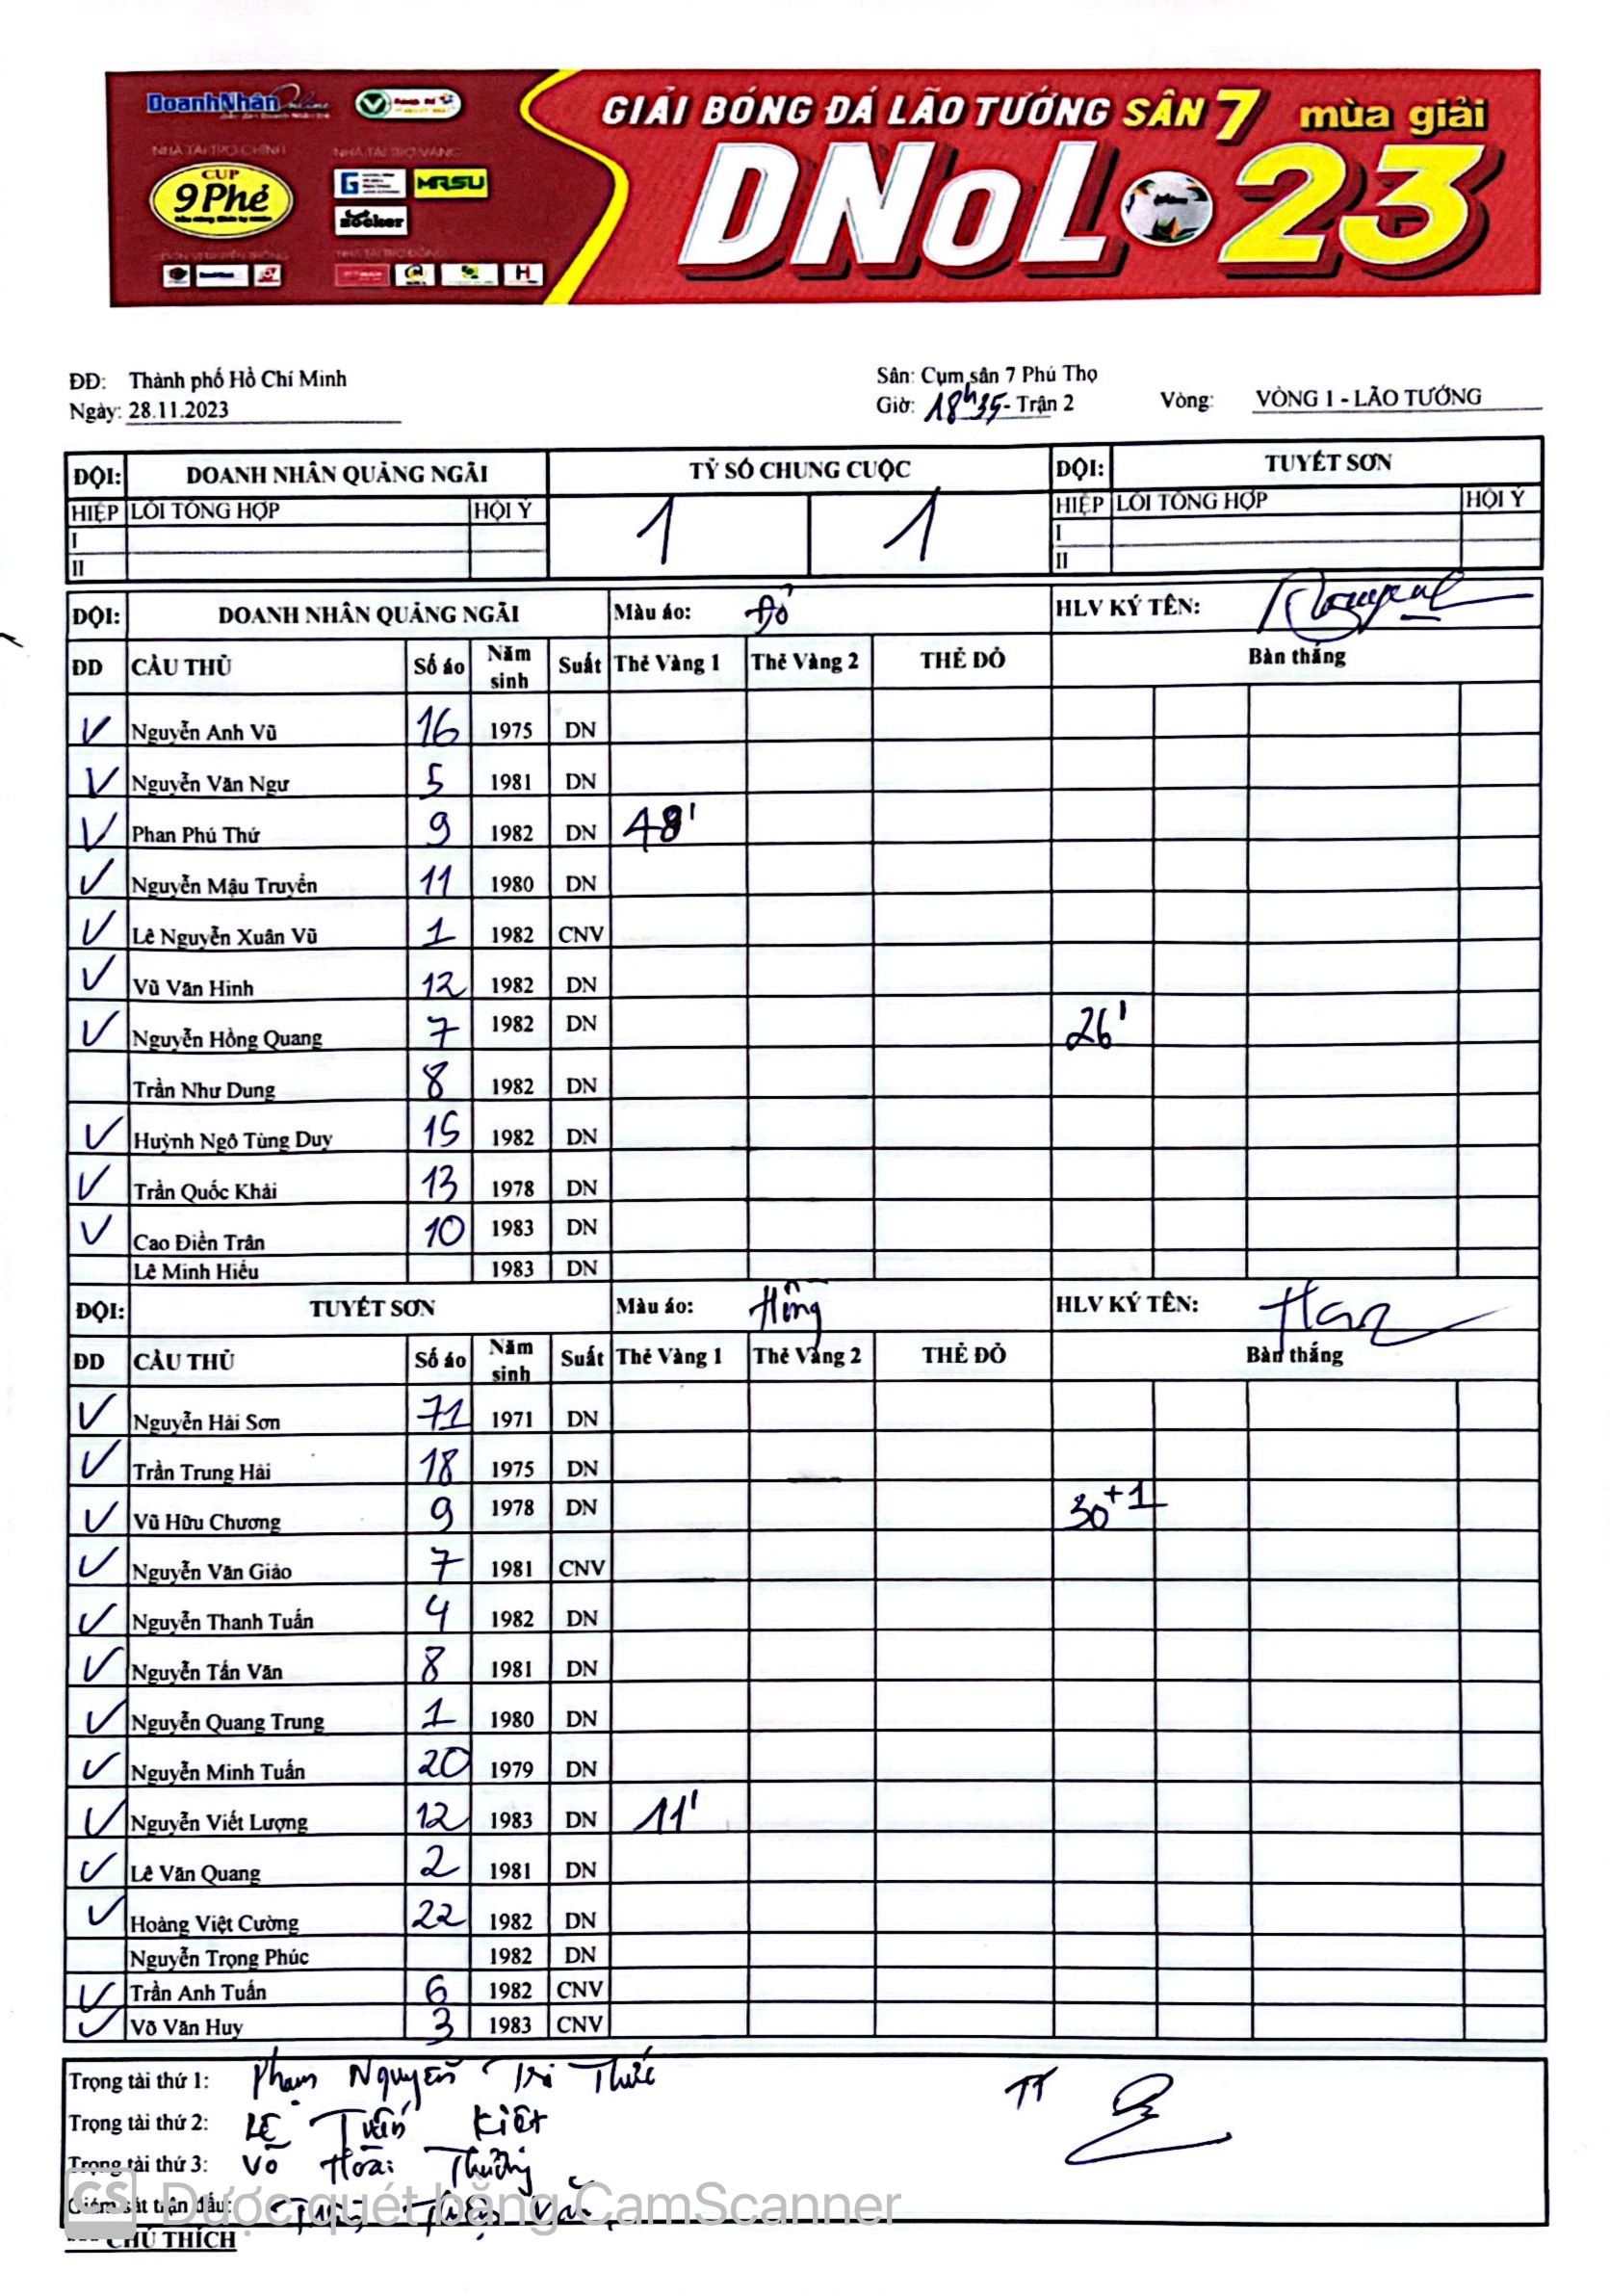 DoanhNhân Online
GIẢI BÓNG ĐÁ LÃO TƯỚNG SÂN 7 mùa giải
DNoL 23
NHÀ TÀI TRỢ CHÍNH
NHÀ TÀI TRỢ VÀNG
CUP
9 Phẻ
MRSU
ĐĐ: Thành phố Hồ Chí Minh
Sân: Cụm sân 7 Phú Thọ
Ngày: 28.11.2023
Giờ: 18h35 - Trận 2
Vòng: VÒNG 1 - LÃO TƯỚNG
ĐỘI: DOANH NHÂN QUẢNG NGÃI TỶ SỐ CHUNG CUỘC ĐỘI: TUYẾT SƠN
HIỆP LỖI TỔNG HỢP HỘI Ý 1 1 HIỆP LỖI TỔNG HỢP HỘI Ý
I I
II II
ĐỘI: DOANH NHÂN QUẢNG NGÃI Màu áo: Đỏ HLV KÝ TÊN:
ĐD CẦU THỦ Số áo Năm sinh Suất Thẻ Vàng 1 Thẻ Vàng 2 THẺ ĐỎ Bàn thắng
V Nguyễn Anh Vũ 16 1975 DN
V Nguyễn Văn Ngư 5 1981 DN
V Phan Phú Thứ 9 1982 DN 48'
V Nguyễn Mậu Truyển 11 1980 DN
V Lê Nguyễn Xuân Vũ 1 1982 CNV
V Vũ Văn Hinh 12 1982 DN
V Nguyễn Hồng Quang 7 1982 DN 26'
Trần Như Dung 8 1982 DN
V Huỳnh Ngô Tùng Duy 15 1982 DN
V Trần Quốc Khải 13 1978 DN
V Cao Điền Trân 10 1983 DN
Lê Minh Hiếu 1983 DN
ĐỘI: TUYẾT SƠN Màu áo: Hồng HLV KÝ TÊN:
ĐD CẦU THỦ Số áo Năm sinh Suất Thẻ Vàng 1 Thẻ Vàng 2 THẺ ĐỎ Bàn thắng
V Nguyễn Hải Sơn 71 1971 DN
V Trần Trung Hải 18 1975 DN
V Vũ Hữu Chương 9 1978 DN 30+1
V Nguyễn Văn Giảo 7 1981 CNV
V Nguyễn Thanh Tuấn 4 1982 DN
V Nguyễn Tấn Văn 8 1981 DN
V Nguyễn Quang Trung 1 1980 DN
V Nguyễn Minh Tuấn 20 1979 DN
V Nguyễn Viết Lượng 12 1983 DN 11'
V Lê Văn Quang 2 1981 DN
V Hoàng Việt Cường 22 1982 DN
Nguyễn Trọng Phúc 1982 DN
V Trần Anh Tuấn 6 1982 CNV
V Võ Văn Huy 3 1983 CNV
Trọng tài thứ 1: Phạm Nguyễn Tri Thức
Trọng tài thứ 2: Lê Tuấn Kiệt
Trọng tài thứ 3: Võ Hoài Thương
Giám sát trận đấu:
CS Được quét bằng CamScanner
*** CHÚ THÍCH